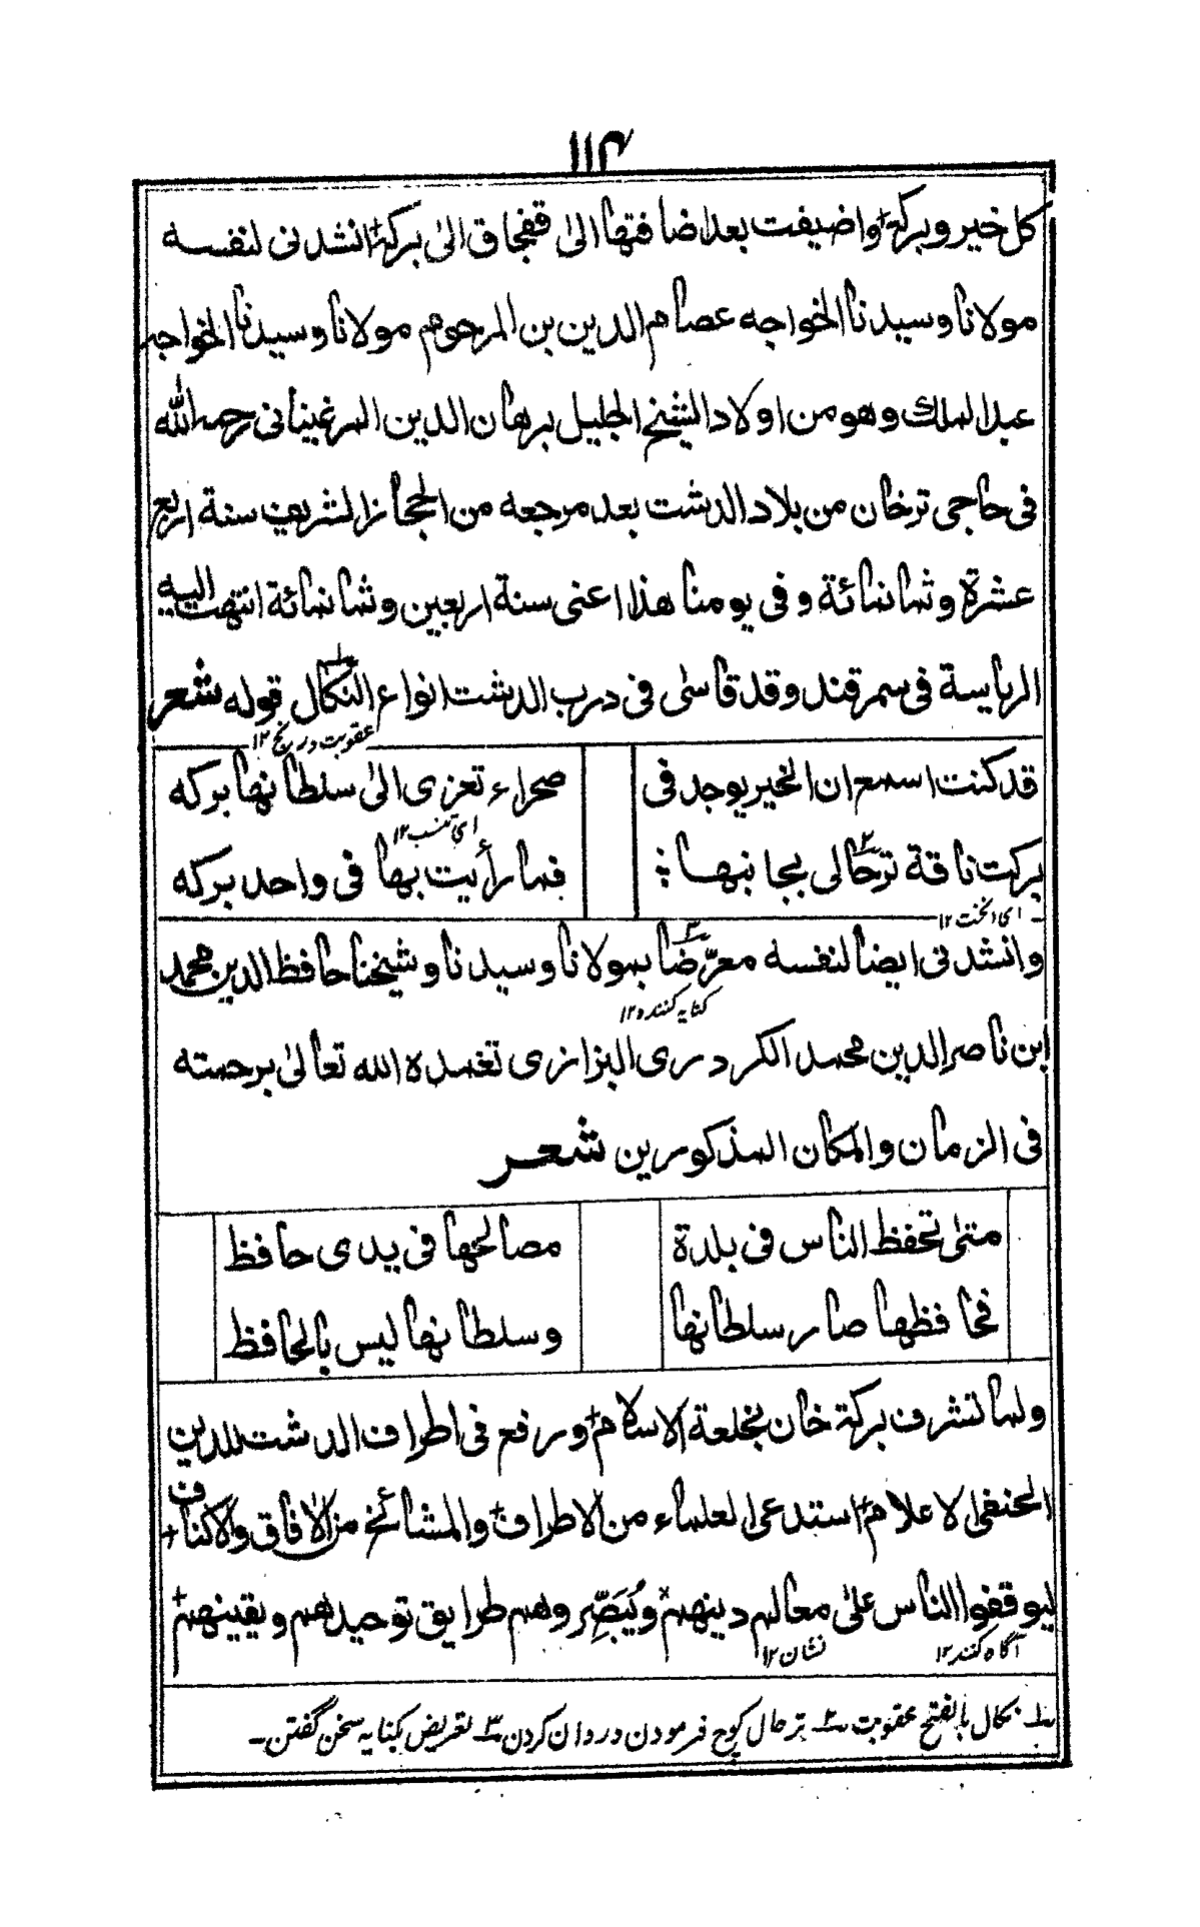 ۱۱۴
كل خير وبركة واضيفت بعد اضافتها الى قفجاق الى بركة انشدنى لنفسه
مولانا وسيدنا الخواجه عصام الدين بن المرحوم مولانا وسيدنا الخواجه
عبد الملك وهو من اولاد الشيخ الجليل برهان الدين المرغينانى رحمه الله
فى حاجى ترخان من بلاد الدشت بعد مرجعه من الحجاز الشريف سنة اربع
عشرة وثمانمائة وفى يومنا هذا اعنى سنة اربعين وثمانمائة انتهت اليه
الرياسة فى سمرقند وقد قاسى فى درب الدشت انواع النكال قوله شعر
عقوبت و رنج ۱۲
قد كنت اسمع ان الخير يوجد فى صحراء تعزى الى سلطانها بركه
اى تنسب ۱۲
بركت ناقة ترحالى بجانبها فما رأيت بها فى واحد بركه
اى انخت ۱۲
وانشدنى ايضا لنفسه معرّضا بمولانا وسيدنا وشيخنا حافظ الدين محمد
كنايه كننده ۱۲
ابن ناصر الدين محمد الكردرى البزازى تغمده الله تعالى برحمته
فى الزمان والمكان المذكورين شعر
متى تحفظ الناس فى بلدة مصالحها فى يدى حافظ
فحافظها صار سلطانها وسلطانها ليس بالحافظ
ولما تشرف بركة خان بخلعة الاسلام ورفع فى اطراف الدشت للدين
الحنفى الاعلام استدعى العلماء من الاطراف والمشائخ من الآفاق والاكناف
ليوقفوا الناس على معالم دينهم ويُبَصِّروهم طرايق توحيدهم ويقينهم
آگاه كنند ۱۲ نشان ۱۲
۱ نكال بالفتح عقوبت ۲ ترحال كوچ فرمودن و روان كردن ۳ تعريض بكنايه سخن گفتن